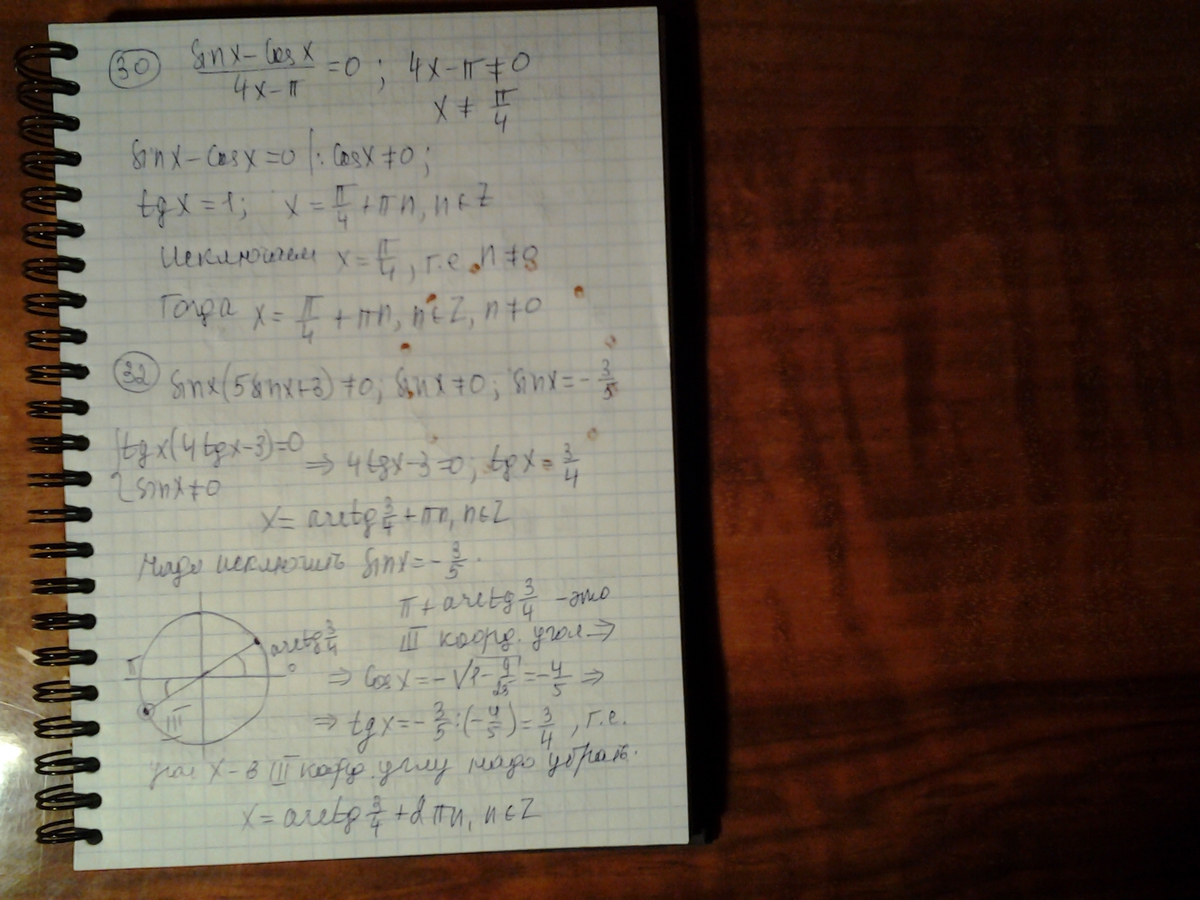 30 (sinx-cosx)/(4x-π) =0; 4x-π≠0
x≠π/4
sinx-cosx=0 |: cosx≠0;
tgx=1; x=π/4+πn, n∈Z
Исключаем x=π/4, т.е. n≠0
Тогда x=π/4+πn, n∈Z, n≠0
32 sinx(5sinx+3)≠0; sinx≠0; sinx=-3/5
{tgx(4tgx-3)=0
sinx≠0 ⇒ 4tgx-3=0; tgx=3/4
x=arctg 3/4+πn, n∈Z
Надо исключить sinx=-3/5.
π+arctg 3/4 -это
III коорд. угол ⇒
π arctg 3/4 0 III
⇒ cosx=-√(1-9/25)=-4/5 ⇒
⇒ tgx=-3/5:(-4/5)=3/4, т.е.
угол x-в III коорд. углу надо убрать.
x=arctg 3/4+2πn, n∈Z